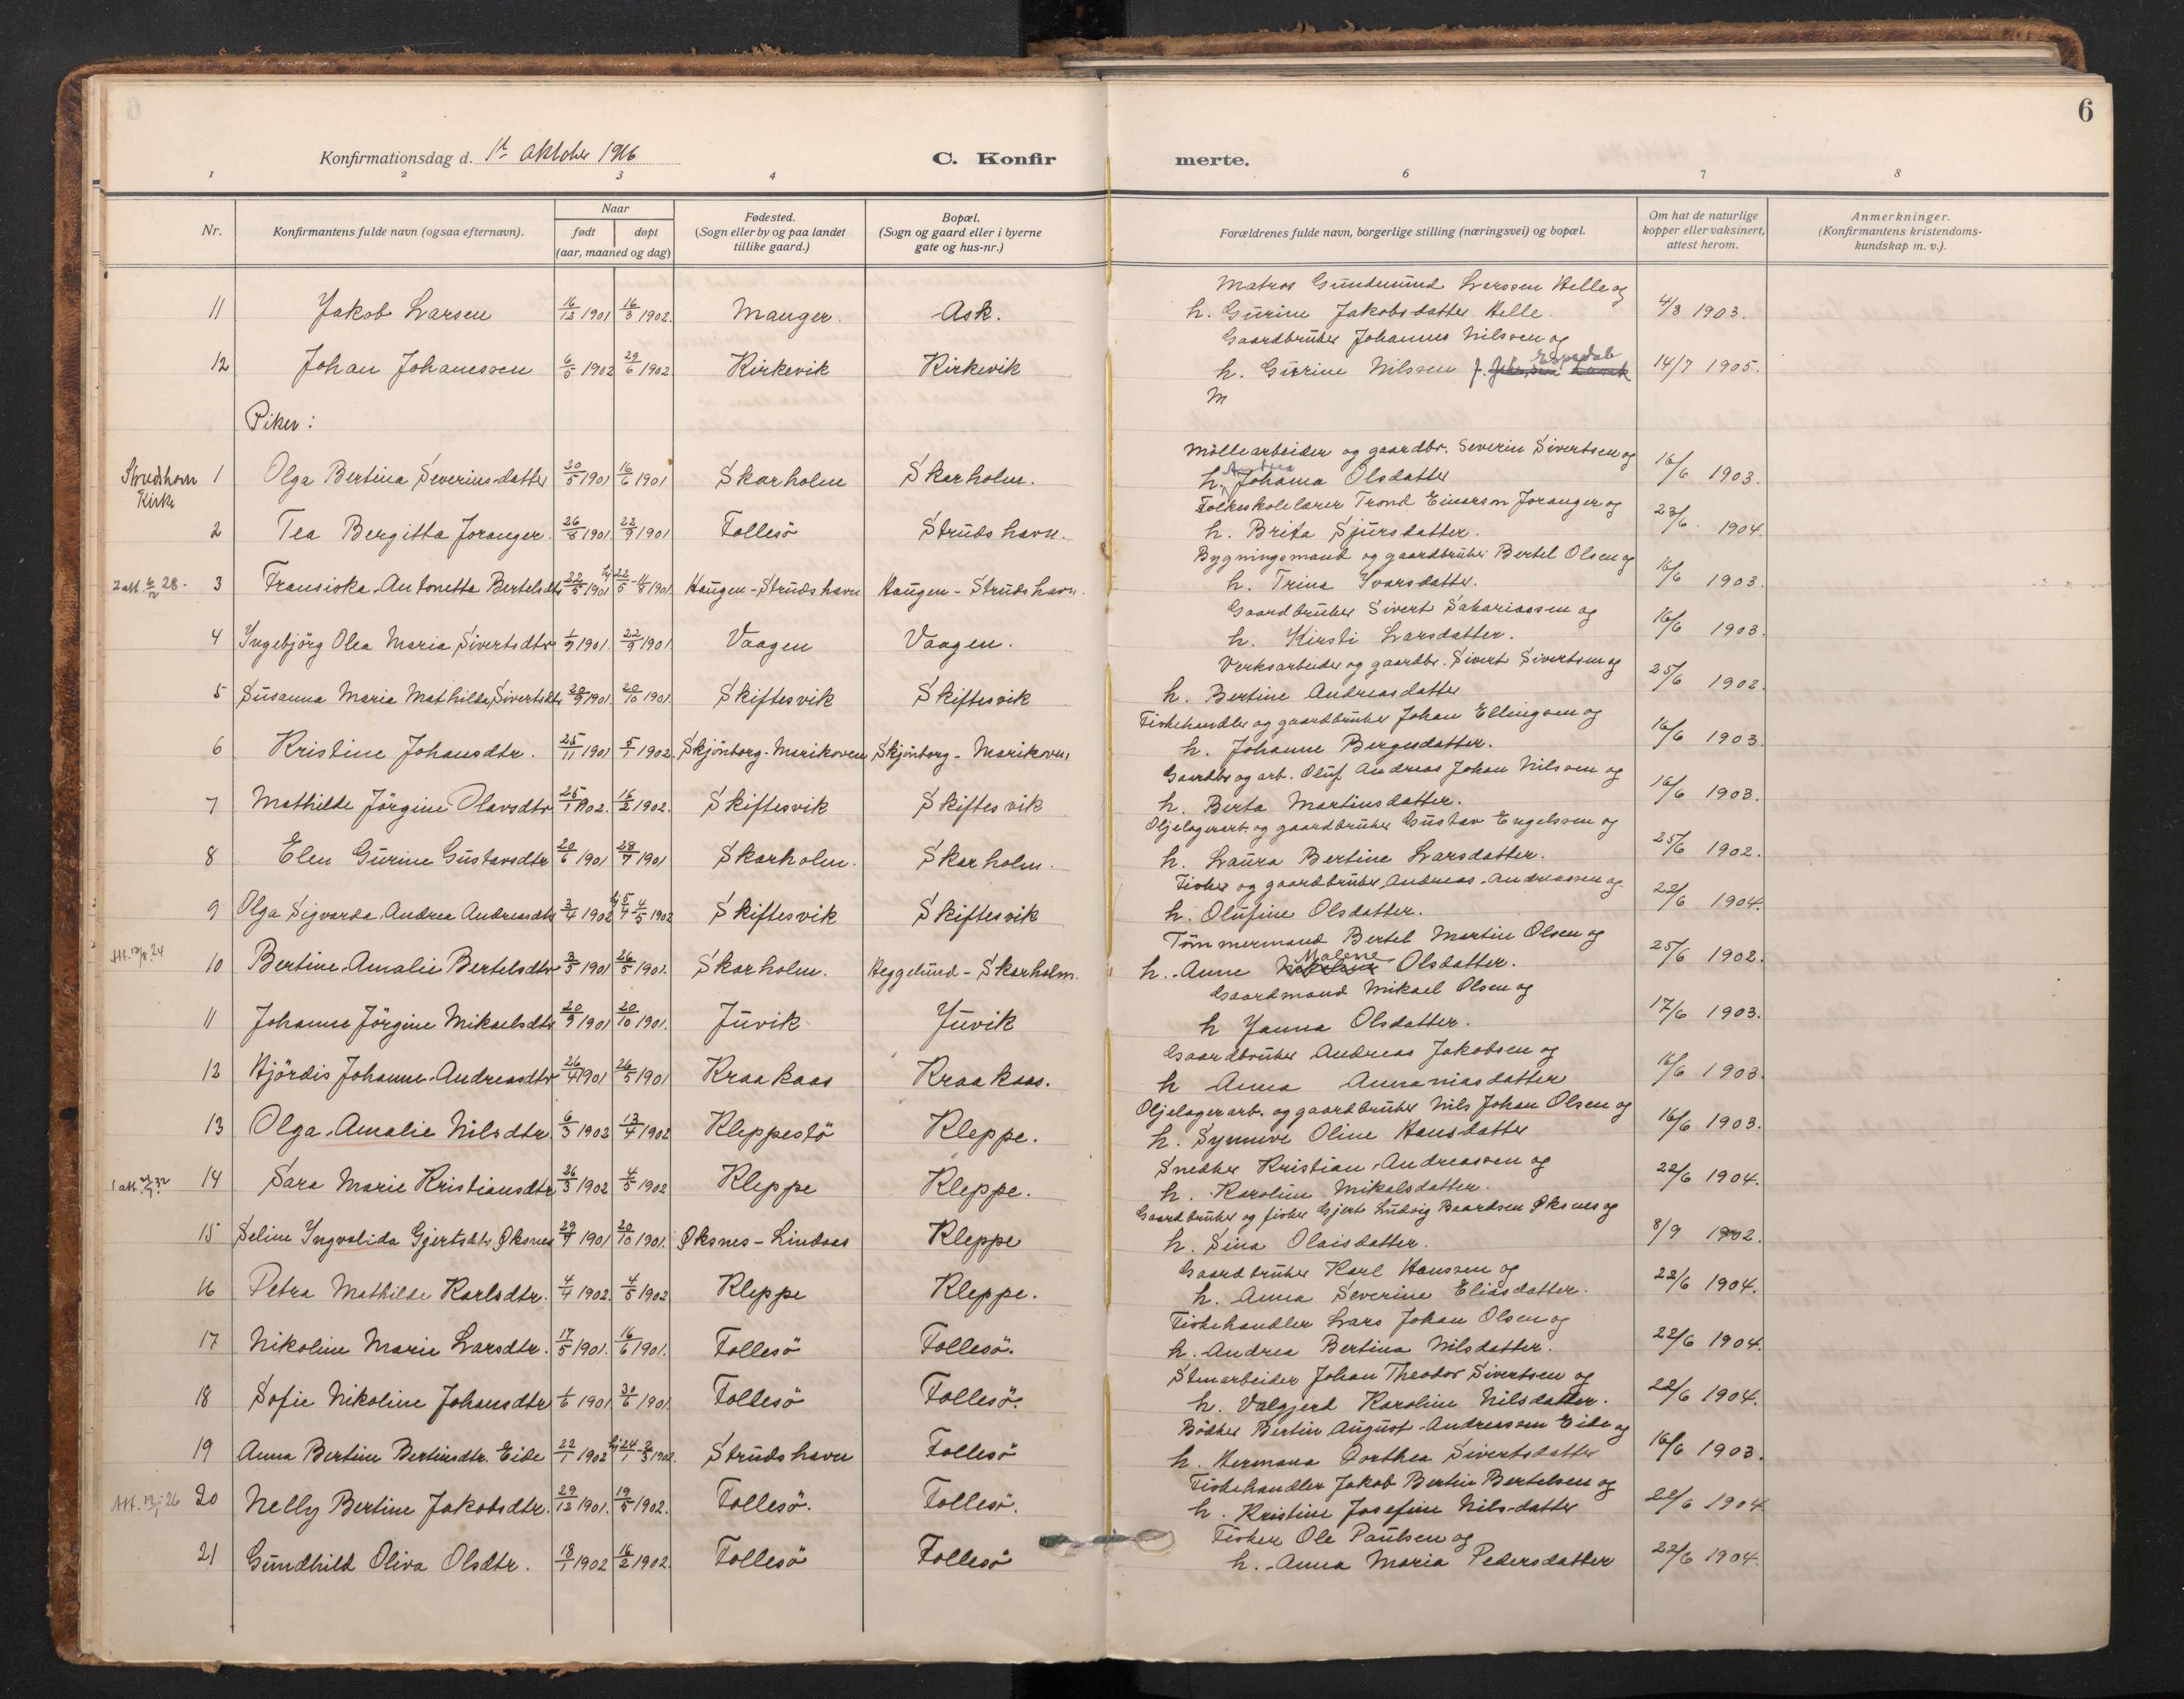 6
Konfirmationsdag d. 1ste oktober 1916
C. Konfirmerte.
1 2 3 4 6 7 8
Nr.
Konfirmantens fulde navn (ogsaa efternavn).
Naar
født døpt
(aar, maaned og dag)
Fødested.
(Sogn eller by og paa landet
tillike gaard.)
Bopæl.
(Sogn og gaard eller i byerne
gate og hus-nr.)
Forældrenes fulde navn, borgerlige stilling (næringsvei) og bopæl.
Om hat de naturlige
kopper eller vaksinert,
attest herom.
Anmerkninger.
(Konfirmantens kristendoms-
kundskap m. v.).
Matros Gundmund Larssen Helle og
11 Jakob Larsen 16/12 1901 16/3 1902. Manger. Ask. h. Gurine Jakobsdatter Helle. 4/3 1903.
Gaardbruker Johannes Nilssen og
12 Johan Johanessen 6/5 1902 29/6 1902 Kirkevik Kirkevik h. Gurine Nilssen f. Espedal 14/7 1905.
M
Piker:
Möllearbeider og gaardbr. Severin Sivertsen og
Strudshavn Kirke 1 Olga Bertina Severinsdatter 20/5 1901 16/6 1901 Skarholm Skarholm. h. Andrea Johanna Olsdatter 16/6 1903.
Folkeskolelærer Trond Einarson Joranger og
2 Tea Bergitta Joranger. 26/8 1901. 22/9 1901 Follesö Strudshavn. h. Brita Sjursdatter. 23/6. 1904.
Bygningsmand og gaardbruker Bertel Olsen og
2 att. 6/12 28. 3 Fransiska Antonetta Bertelsdtr 22/5 1901 hj 22/5 - 4/8 1901. Haugen-Strudshavn Haugen-Strudshavn. h. Trina Ivarsdatter. 16/6 1903.
Gaardbruker Sivert Sakariassen og
4 Ingebjörg Olea Maria Sivertsdtr 1/9 1901. 22/9 1901. Vaagen Vaagen. h. Kirsti Larsdatter. 16/6 1903.
Verksarbeider og gaardbr. Sivert Sivertsen og
5 Susanna Maria Mathilda Sivertsdtr 20/9 1901. 20/10 1901. Skiftesvik Skiftesvik h. Bertine Andreasdatter 25/6 1902.
Fiskehandler og gaardbruker Johan Ellingsen og
6 Kristine Johansdtr. 25/11 1901 5/1 1902. Skjönborg-Marikoven Skjönborg-Marikoven h. Johanne Bergesdatter. 16/6 1903.
Gaardbr og arb. Oluf Andreas Johan Nilssen og
7 Mathilde Jörgine Olavsdtr 25/1 1902. 16/2 1902. Skiftesvik Skiftesvik h. Berta Martinsdatter. 16/6 1903.
Oljelagerarb. og gaardbruker Gustav Engelssen og
8 Elen Gurine Gustavsdtr 20/6 1901 28/7 1901 Skarholm. Skarholm. h. Laura Bertine Larsdatter. 25/6 1902.
Fisker og gaardbruker Andreas Andreassen og
9 Olga Sigvarda Andrea Andreasdtr 3/4 1902 hj 5/4 - 4/5 1902 Skiftesvik Skiftesvik h. Olufine Olsdatter. 22/6 1904.
Tömmermand Bertel Martin Olsen og
10 Bertine Amalie Bertelsdtr 3/5 1901 26/5 1901. Skarholm. Heggelund-Skarholm. h. Anne Malene Olsdatter. 25/6 1902.
Gaardmand Mikael Olsen og
11 Johanne Jörgine Mikaelsdtr 20/9 1901 20/10 1901. Juvik Juvik h Janna Olsdatter. 17/6 1903.
Gaardbruker Andreas Jakobsen og
12 Hjördis Johanne Andreasdtr 26/4 1901 26/5 1901 Kraakaas Kraakaas. h Anna Annaniasdatter 16/6 1903.
Oljelagerarb. og gaardbruker Nils Johan Olsen og
13 Olga Amalie Nilsdtr 6/3 1902 13/4 1902 Kleppestö Kleppe. h. Synneve Oline Hansdatter 16/6 1903.
Snedker Kristian Andreassen og
14 Sara Marie Kristiansdtr 26/3 1902 4/5 1902 Kleppe Kleppe. h. Karoline Mikalsdatter. 22/6 1904.
Gaardbruker og fisker Gjert Ludvig Baardsen Øksnes og
15 Seline Ingvalida Gjertsdtr Øksnes 29/9 1901 20/10 1901. Øksnes-Lindaas Kleppe h. Sina Olaisdatter. 8/9 1902.
Gaardbruker Karl Hanssen og
16 Petra Mathilde Karlsdtr. 4/4 1902. 4/5 1902 Kleppe Kleppe. h. Anna Severine Eliasdatter. 22/6 1904.
Fiskehandler Lars Johan Olsen og
17 Nikoline Marie Larsdtr. 17/5 1901. 16/6 1901. Follesö Follesö. h. Andrea Bertina Nilsdatter. 22/6 1904.
Stenarbeider Johan Theodor Sivertsen og
18 Sofie Nikoline Johansdtr 1/6 1901 30/6 1901. Follesö Follesö. h. Valgjerd Karoline Nilsdatter. 22/6 1904.
Bödker Bertin August Andreassen Eide og
19 Anna Bertine Bertinsdtr. Eide 22/1 1902 hj 24/1 - 2/3 1902. Strudshavn Follesö h. Hermana Dorthea Sivertsdatter 16/6 1903.
Fiskehandler Jakob Bertin Bertelsen og
Att. 19/1-26 20 Nelly Bertine Jakobsdtr. 29/12 1901. 19/5 1902. Follesö. Follesö. h. Kristine Josefine Nilsdatter 22/6 1904
Fisker Ole Paulsen og
21 Gundhild Oliva Olsdtr. 18/1 1902 16/2 1902. Follesö Follesö h. Anna Maria Pedersdatter 22/6 1904.